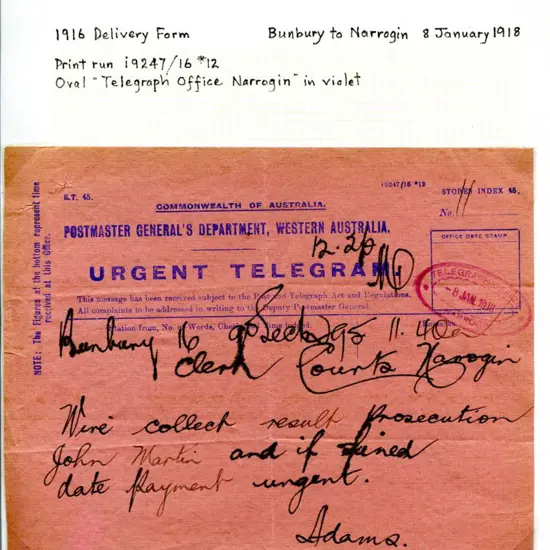 1916 Delivery Form Bunbury to Narrogin 8 January 1918
Print run 19247/16 *12
Oval "Telegraph Office Narrogin" in violet
E.T. 45.
19247/16 *12
STORES INDEX 45,
COMMONWEALTH OF AUSTRALIA.
No. 11
POSTMASTER GENERAL'S DEPARTMENT, WESTERN AUSTRALIA.
OFFICE DATE STAMP
12.20
URGENT TELEGRAM.
TELEGRAPH
-8 JAN. 1918
This message has been received subject to the Post and Telegraph Act and Regulations.
All complaints to be addressed in writing to the Deputy Postmaster General.
Station from, No. of Words,
Bunbury 16 295 11.40
Clerk Courts Narrogin
Wire collect result prosecution
John Martin and if fined
date payment urgent.
Adams.
NOTE: The Figures at the bottom represent time
received at this Office.